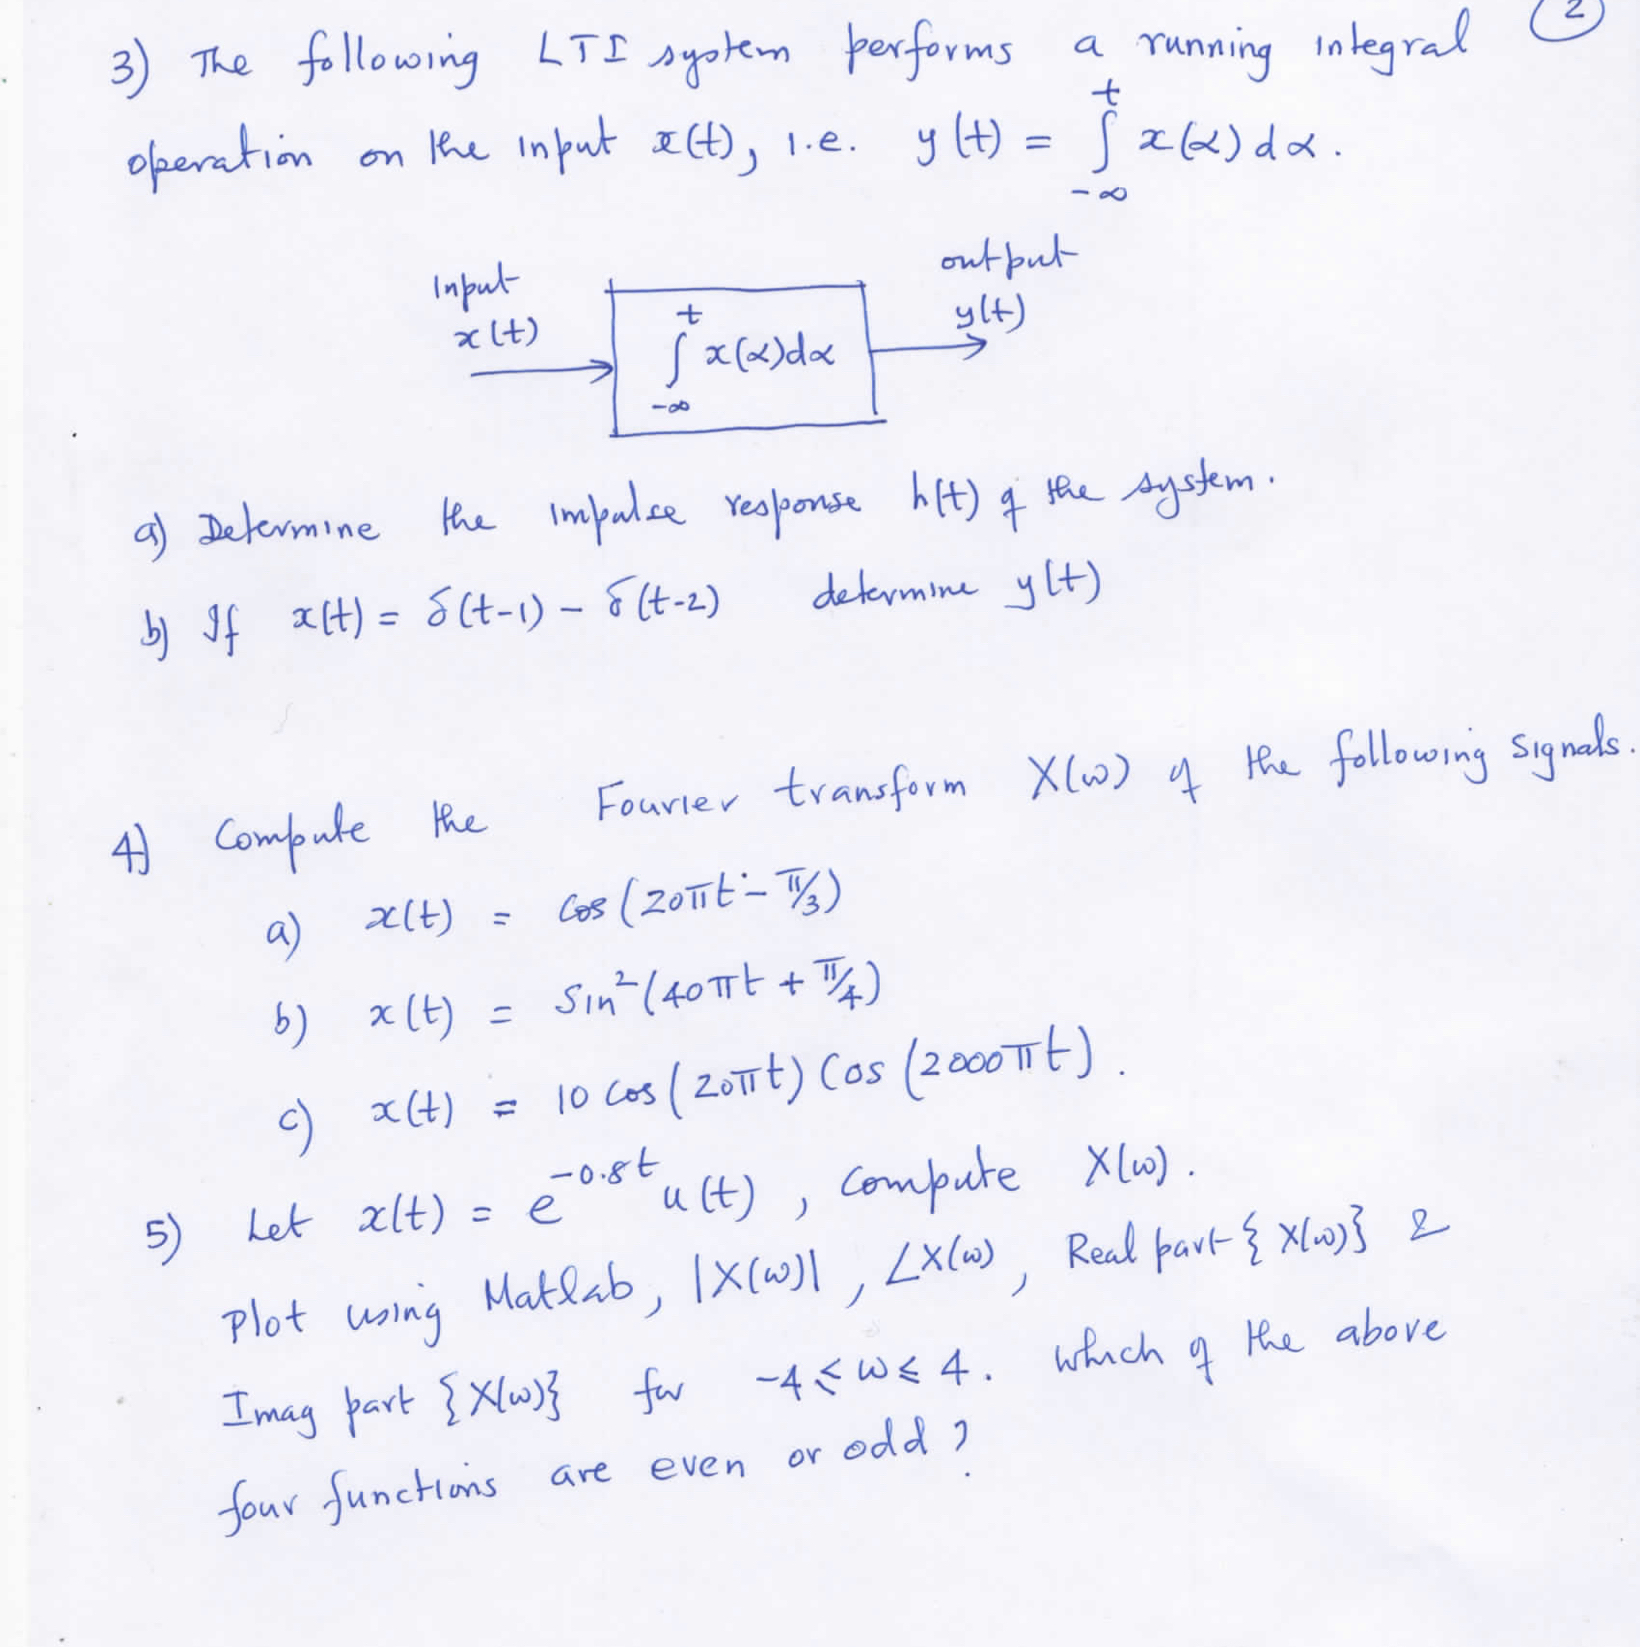 2
3) The following LTI system performs a running integral
operation on the input x(t), i.e. y(t) = ∫_{-∞}^{t} x(α)dα.
Input
x(t)
∫_{-∞}^{t} x(α)dα
output
y(t)
a) Determine the impulse response h(t) of the system.
b) If x(t) = δ(t-1) - δ(t-2) determine y(t)
4) Compute the Fourier transform X(ω) of the following signals.
a) x(t) = Cos(20πt - π/3)
b) x(t) = Sin²(40πt + π/4)
c) x(t) = 10 Cos(20πt) Cos(2000πt).
5) Let x(t) = e^{-0.8t} u(t), compute X(ω).
Plot using Matlab, |X(ω)|, ∠X(ω), Real part{X(ω)} &
Imag part {X(ω)} for -4 ≤ ω ≤ 4. which of the above
four functions are even or odd?